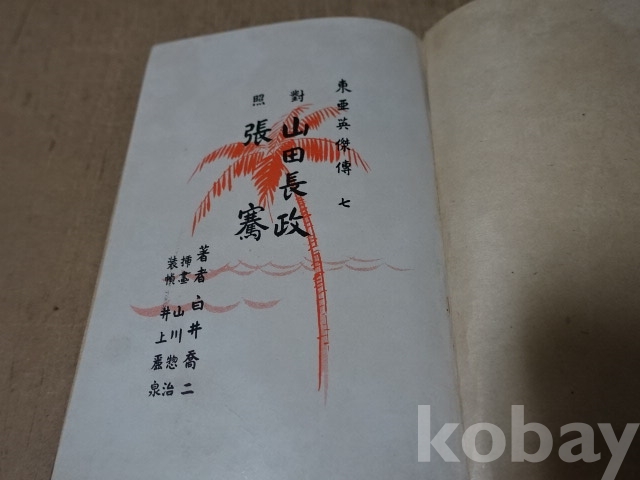 東亜英傑傳 七
對照
山田長政
張騫
著者 白井喬二
挿畫 山川惣治
装幀 井上䕻泉
kobay